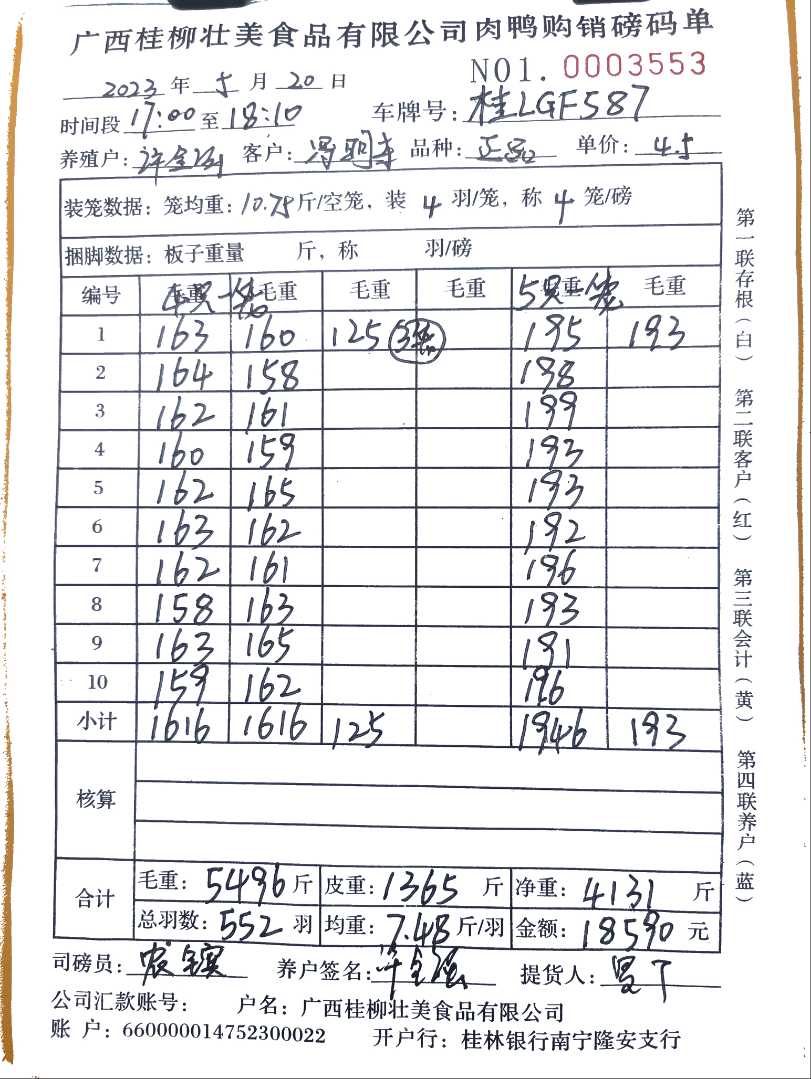 广西桂柳壮美食品有限公司肉鸭购销磅码单
2023 年 5 月 20 日 NO1. 0003553
时间段 17:00 至 18:10 车牌号: 桂LGF587
养殖户: 许全强 客户: 冯明 品种: 正品 单价: 4.5
装笼数据: 笼均重: 10.75 斤/空笼, 装 4 羽/笼, 称 4 笼/磅
捆脚数据: 板子重量 斤, 称 羽/磅
编号 毛重 毛重 毛重 毛重 毛重 毛重
4只一笼 5只一笼
1 163 160 125 3笼 195 193
2 164 158 198
3 162 161 199
4 160 159 193
5 162 165 193
6 163 162 192
7 162 161 196
8 158 163 193
9 163 165 191
10 159 162 196
小计 1616 1616 125 1946 193
核算
合计 毛重: 5496 斤 皮重: 1365 斤 净重: 4131 斤
总羽数: 552 羽 均重: 7.48 斤/羽 金额: 18590 元
司磅员: 养户签名: 许全强 提货人:
公司汇款账号: 户名: 广西桂柳壮美食品有限公司
账 户: 660000014752300022 开户行: 桂林银行南宁隆安支行
第一联存根(白) 第二联客户(红) 第三联会计(黄) 第四联养户(蓝)